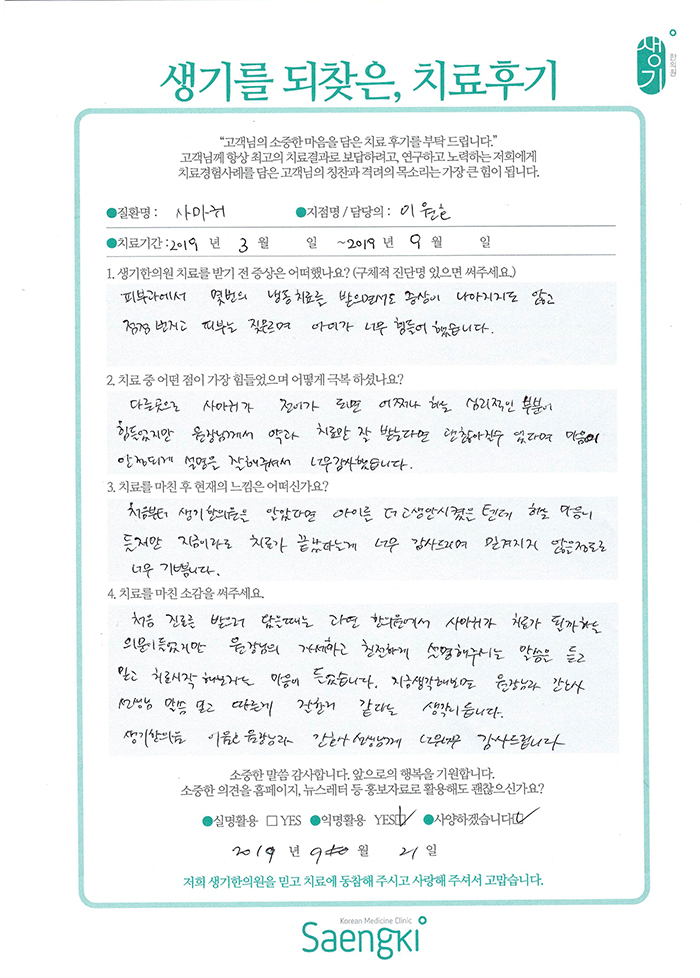 생기 한의원
생기를 되찾은, 치료후기
“고객님의 소중한 마음을 담은 치료 후기를 부탁 드립니다.”
고객님께 항상 최고의 치료결과로 보답하려고, 연구하고 노력하는 저희에게
치료경험사례를 담은 고객님의 칭찬과 격려의 목소리는 가장 큰 힘이 됩니다.
●질환명 : 사마귀 ●지점명 / 담당의 : 이
●치료기간 : 2019 년 3 월 일 ~2019 년 9 월 일
1. 생기한의원 치료를 받기 전 증상은 어떠했나요? (구체적 진단명 있으면 써주세요.)
피부과에서 몇번의 냉동치료를 받으면서도 증상이 나아지지도 않고
점점 번지고 피부는 짓무르며 아이가 너무 힘들어 했습니다.
2. 치료 중 어떤 점이 가장 힘들었으며 어떻게 극복 하셨나요?
다른곳으로 사마귀가 전이가 되면 어쩌나 하는 심리적인 부분이
힘들었지만 원장님께서 약과 치료만 잘 받는다면 괜찮아진수 있다며 마음이
안정되게 설명을 잘해주셔서 너무감사했습니다.
3. 치료를 마친 후 현재의 느낌은 어떠신가요?
처음부터 생기한의원을 알았다면 아이를 더고생안시켰을 텐데 하는 마음이
듯지만 지금이라도 치료가 끝났다는게 너무 감사드리며 믿겨지지 않을정도로
너무 기쁩니다.
4. 치료를 마친 소감을 써주세요.
처음 진료를 받으러 왔을때는 과연 한의원에서 사마귀가 치료가 될까하는
의문이들었지만 원장님의 자세하고 친절하게 설명해주시는 말씀을 듣고
믿고 치료시작 해보자는 마음이 들었습니다. 지금생각해보면 원장님과 간호사
선생님 말씀 믿고 따른게 잘한거 같다는 생각이듭니다.
생기한의원 원장님과 간호사 선생님께 너무너무 감사드립니다
소중한 말씀 감사합니다. 앞으로의 행복을 기원합니다.
소중한 의견을 홈페이지, 뉴스레터 등 홍보자료로 활용해도 괜찮으신가요?
●실명활용 □ YES ●익명활용 YES□ ●사양하겠습니다□
2019 년 9 월 21 일
저희 생기한의원을 믿고 치료에 동참해 주시고 사랑해 주셔서 고맙습니다.
Korean Medicine Clinic
Saengki